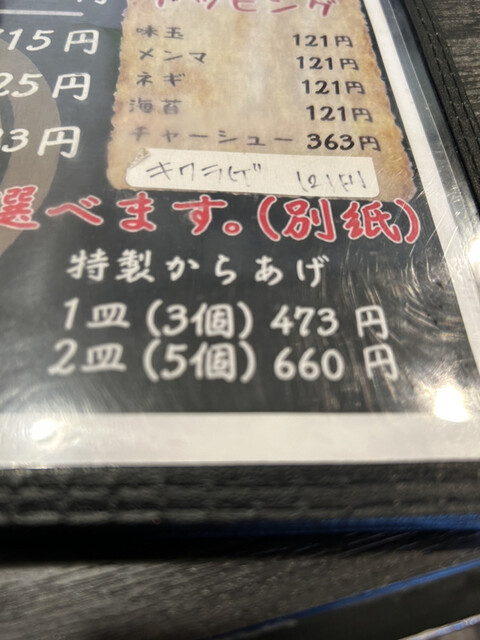 円
トッピング
味玉 121円
メンマ 121円
ネギ 121円
海苔 121円
チャーシュー 363円
キクラゲ 121円
15円
25円
3円
選べます。(別紙)
特製からあげ
1皿 (3個) 473円
2皿 (5個) 660円